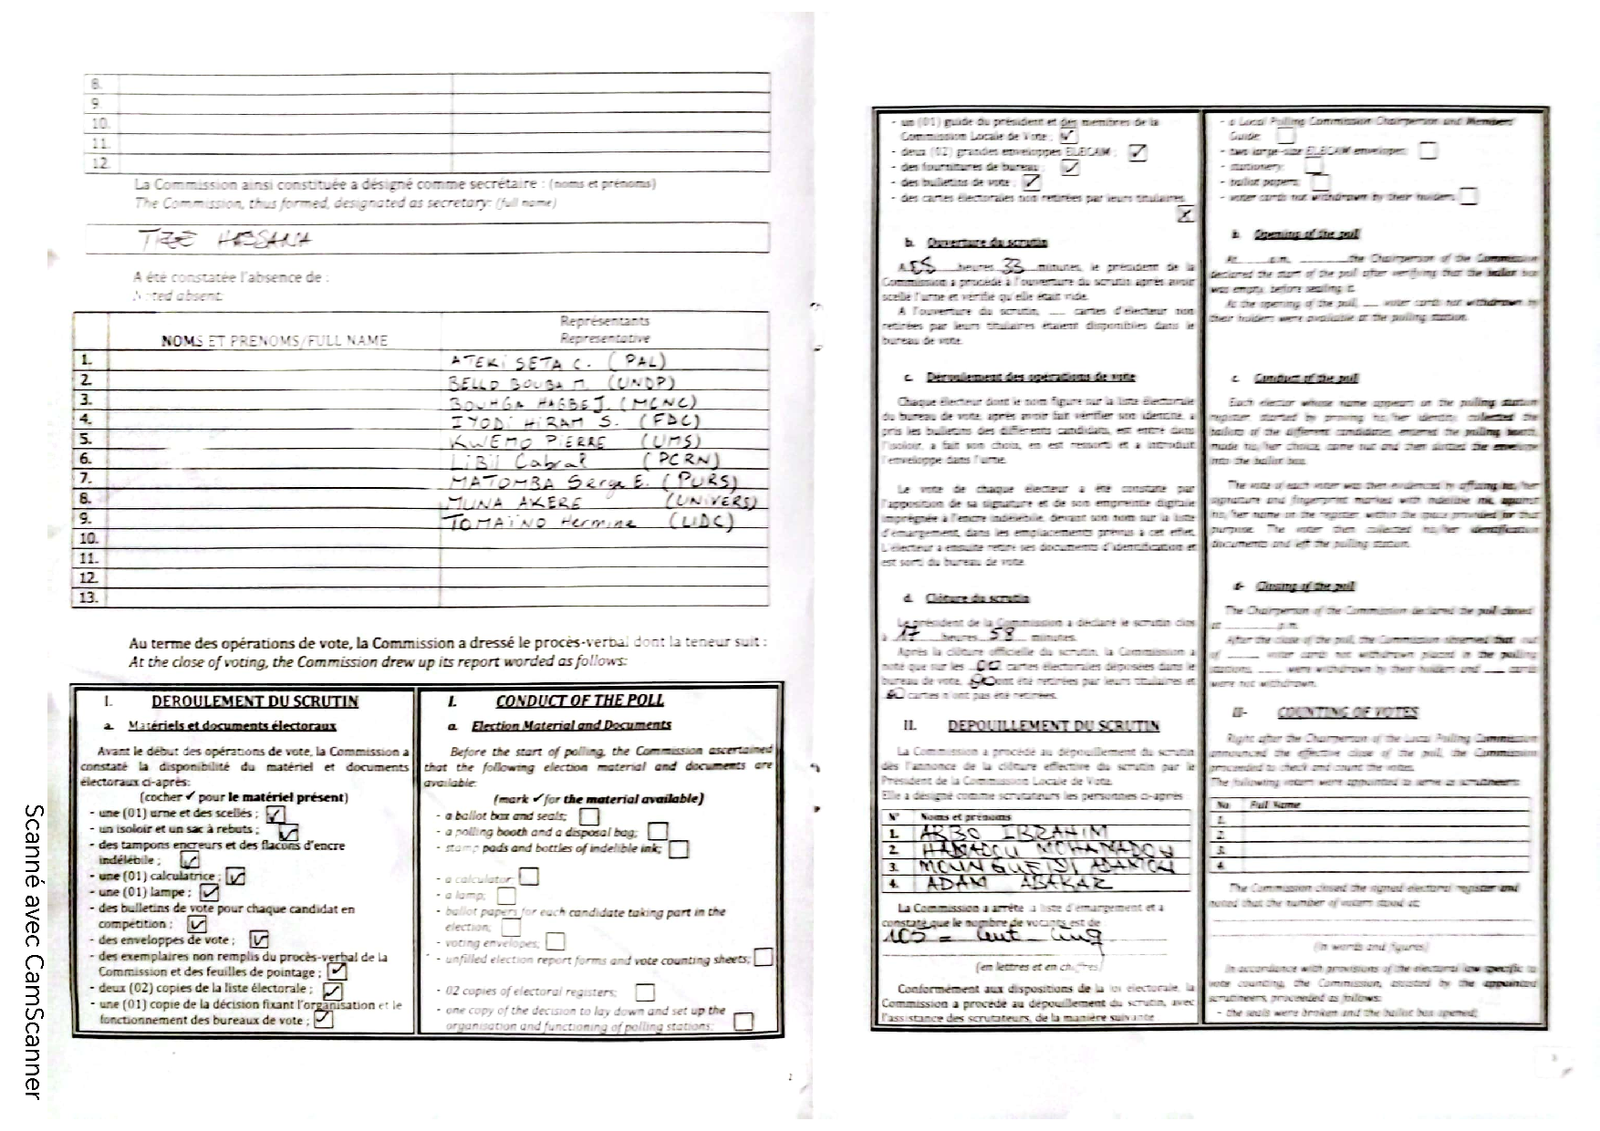 8.
9.
10.
11.
12.
La Commission ainsi constituée a désigné comme secrétaire : (noms et prénoms)
The Commission, thus formed, designated as secretary: (full name)
HASSANA
A été constatée l'absence de :
Noted absent:
NOMS ET PRENOMS/FULL NAME
Représentants
Representative
1. ATEKI SETA C. (PAL)
2. BELLO BOUBA M. (UNDP)
3. BOUHGA HAGBE J. (MCNC)
4. IYODI HIRAM S. (FDC)
5. KWEMO PIERRE (UMS)
6. LiBii Cabral (PCRN)
7. MATOMBA Serge E. (PURS)
8. MUNA AKERE (UNIVERS)
9. TOMAÏNO Hermine (UDC)
10.
11.
12.
13.
Au terme des opérations de vote, la Commission a dressé le procès-verbal dont la teneur suit :
At the close of voting, the Commission drew up its report worded as follows:
I. DEROULEMENT DU SCRUTIN
a. Matériels et documents électoraux
Avant le début des opérations de vote, la Commission a
constaté la disponibilité du matériel et documents
électoraux ci-après:
(cocher ✓ pour le matériel présent)
- une (01) urne et des scellés ; ☑
- un isoloir et un sac à rebuts ; ☑
- des tampons encreurs et des flacons d'encre
indélébile ; ☑
- une (01) calculatrice ; ☑
- une (01) lampe ; ☑
- des bulletins de vote pour chaque candidat en
compétition ; ☑
- des enveloppes de vote ; ☑
- des exemplaires non remplis du procès-verbal de la
Commission et des feuilles de pointage ; ☑
- deux (02) copies de la liste électorale ; ☑
- une (01) copie de la décision fixant l'organisation et le
fonctionnement des bureaux de vote ; ☑
I. CONDUCT OF THE POLL
a. Election Material and Documents
Before the start of polling, the Commission ascertained
that the following election material and documents are
available:
(mark ✓ for the material available)
- a ballot box and seals; ☐
- a polling booth and a disposal bag; ☐
- stamp pads and bottles of indelible ink; ☐
- a calculator; ☐
- a lamp; ☐
- ballot papers for each candidate taking part in the
election; ☐
- voting envelopes; ☐
- unfilled election report forms and vote counting sheets; ☐
- 02 copies of electoral registers; ☐
- one copy of the decision to lay down and set up the
organisation and functioning of polling stations; ☐
2
Scanné avec CamScanner
- un (01) guide du président et des membres de la
Commission Locale de Vote ; ☑
- deux (02) grandes enveloppes ELECAM ; ☑
- des fournitures de bureau ; ☑
- des bulletins de vote ; ☑
- des cartes électorales non retirées par leurs titulaires
☒
b. Ouverture du scrutin
A heures 33 minutes, le président de la
Commission a procédé à l'ouverture du scrutin après avoir
scellé l'urne et vérifié qu'elle était vide.
A l'ouverture du scrutin, ___ cartes d'électeur non
retirées par leurs titulaires étaient disponibles dans le
bureau de vote.
c. Déroulement des opérations de vote
Chaque électeur dont le nom figure sur la liste électorale
du bureau de vote, après avoir fait vérifier son identité, a
pris les bulletins des différents candidats, est entré dans
l'isoloir, a fait son choix, en est ressorti et a introduit
l'enveloppe dans l'urne.
Le vote de chaque électeur a été constaté par
l'apposition de sa signature et de son empreinte digitale
imprégnée à l'encre indélébile, devant son nom sur la liste
d'émargement, dans les emplacements prévus à cet effet.
L'électeur a ensuite retiré ses documents d'identification et
est sorti du bureau de vote.
d. Clôture du scrutin
Le président de la Commission a déclaré le scrutin clos
à 17 heures 58 minutes.
Après la clôture officielle du scrutin, la Commission a
noté que sur les 00 cartes électorales déposées dans le
bureau de vote, ont été retirées par leurs titulaires et
cartes n'ont pas été retirées.
II. DEPOUILLEMENT DU SCRUTIN
La Commission a procédé au dépouillement du scrutin
dès l'annonce de la clôture effective du scrutin par le
Président de la Commission Locale de Vote.
Elle a désigné comme scrutateurs les personnes ci-après
N° Noms et prénoms
1. ARBO IBRAHIM
2. HAMADOU MOHAMADOU
3.
4. ADAM ABAKAR
La Commission a arrêté la liste d'émargement et a
constaté que le nombre de votants est de
105 = Cent - cinq
(en lettres et en chiffres)
Conformément aux dispositions de la loi électorale, la
Commission a procédé au dépouillement du scrutin, avec
l'assistance des scrutateurs, de la manière suivante
- a Local Polling Commission Chairperson and Members'
Guide; ☐
- two large-size ELECAM envelopes; ☐
- stationery; ☐
- ballot papers; ☐
- voter cards not withdrawn by their holders; ☐
b. Opening of the poll
At ___ a.m, ___ the Chairperson of the Commission
declared the start of the poll after verifying that the ballot box
was empty, before sealing it.
At the opening of the poll, ___ voter cards not withdrawn by
their holders were available at the polling station.
c. Conduct of the poll
Each elector whose name appears on the polling station
register, started by proving his/her identity, collected the
ballots of the different candidates, entered the polling booth,
made his/her choice, came out and then slotted the envelope
into the ballot box.
The vote of each voter was then evidenced by affixing his/her
signature and fingerprint marked with indelible ink, against
his/her name on the register, within the space provided for that
purpose. The voter then collected his/her identification
documents and left the polling station.
d- Closing of the poll
The Chairperson of the Commission declared the poll closed
at ___ p.m.
After the close of the poll, the Commission observed that out
of ___ voter cards not withdrawn placed in the polling
stations, ___ were withdrawn by their holders and ___ cards
were not withdrawn.
II- COUNTING OF VOTES
Right after the Chairperson of the Local Polling Commission
announced the effective close of the poll, the Commission
proceeded to check and count the votes.
The following voters were appointed to serve as scrutineers:
No Full Name
1.
2.
3.
4.
The Commission closed the signed electoral register and
noted that the number of voters stood at:
(in words and figures)
In accordance with provisions of the electoral law specific to
vote counting, the Commission, assisted by the appointed
scrutineers, proceeded as follows:
- the seals were broken and the ballot box opened;
3